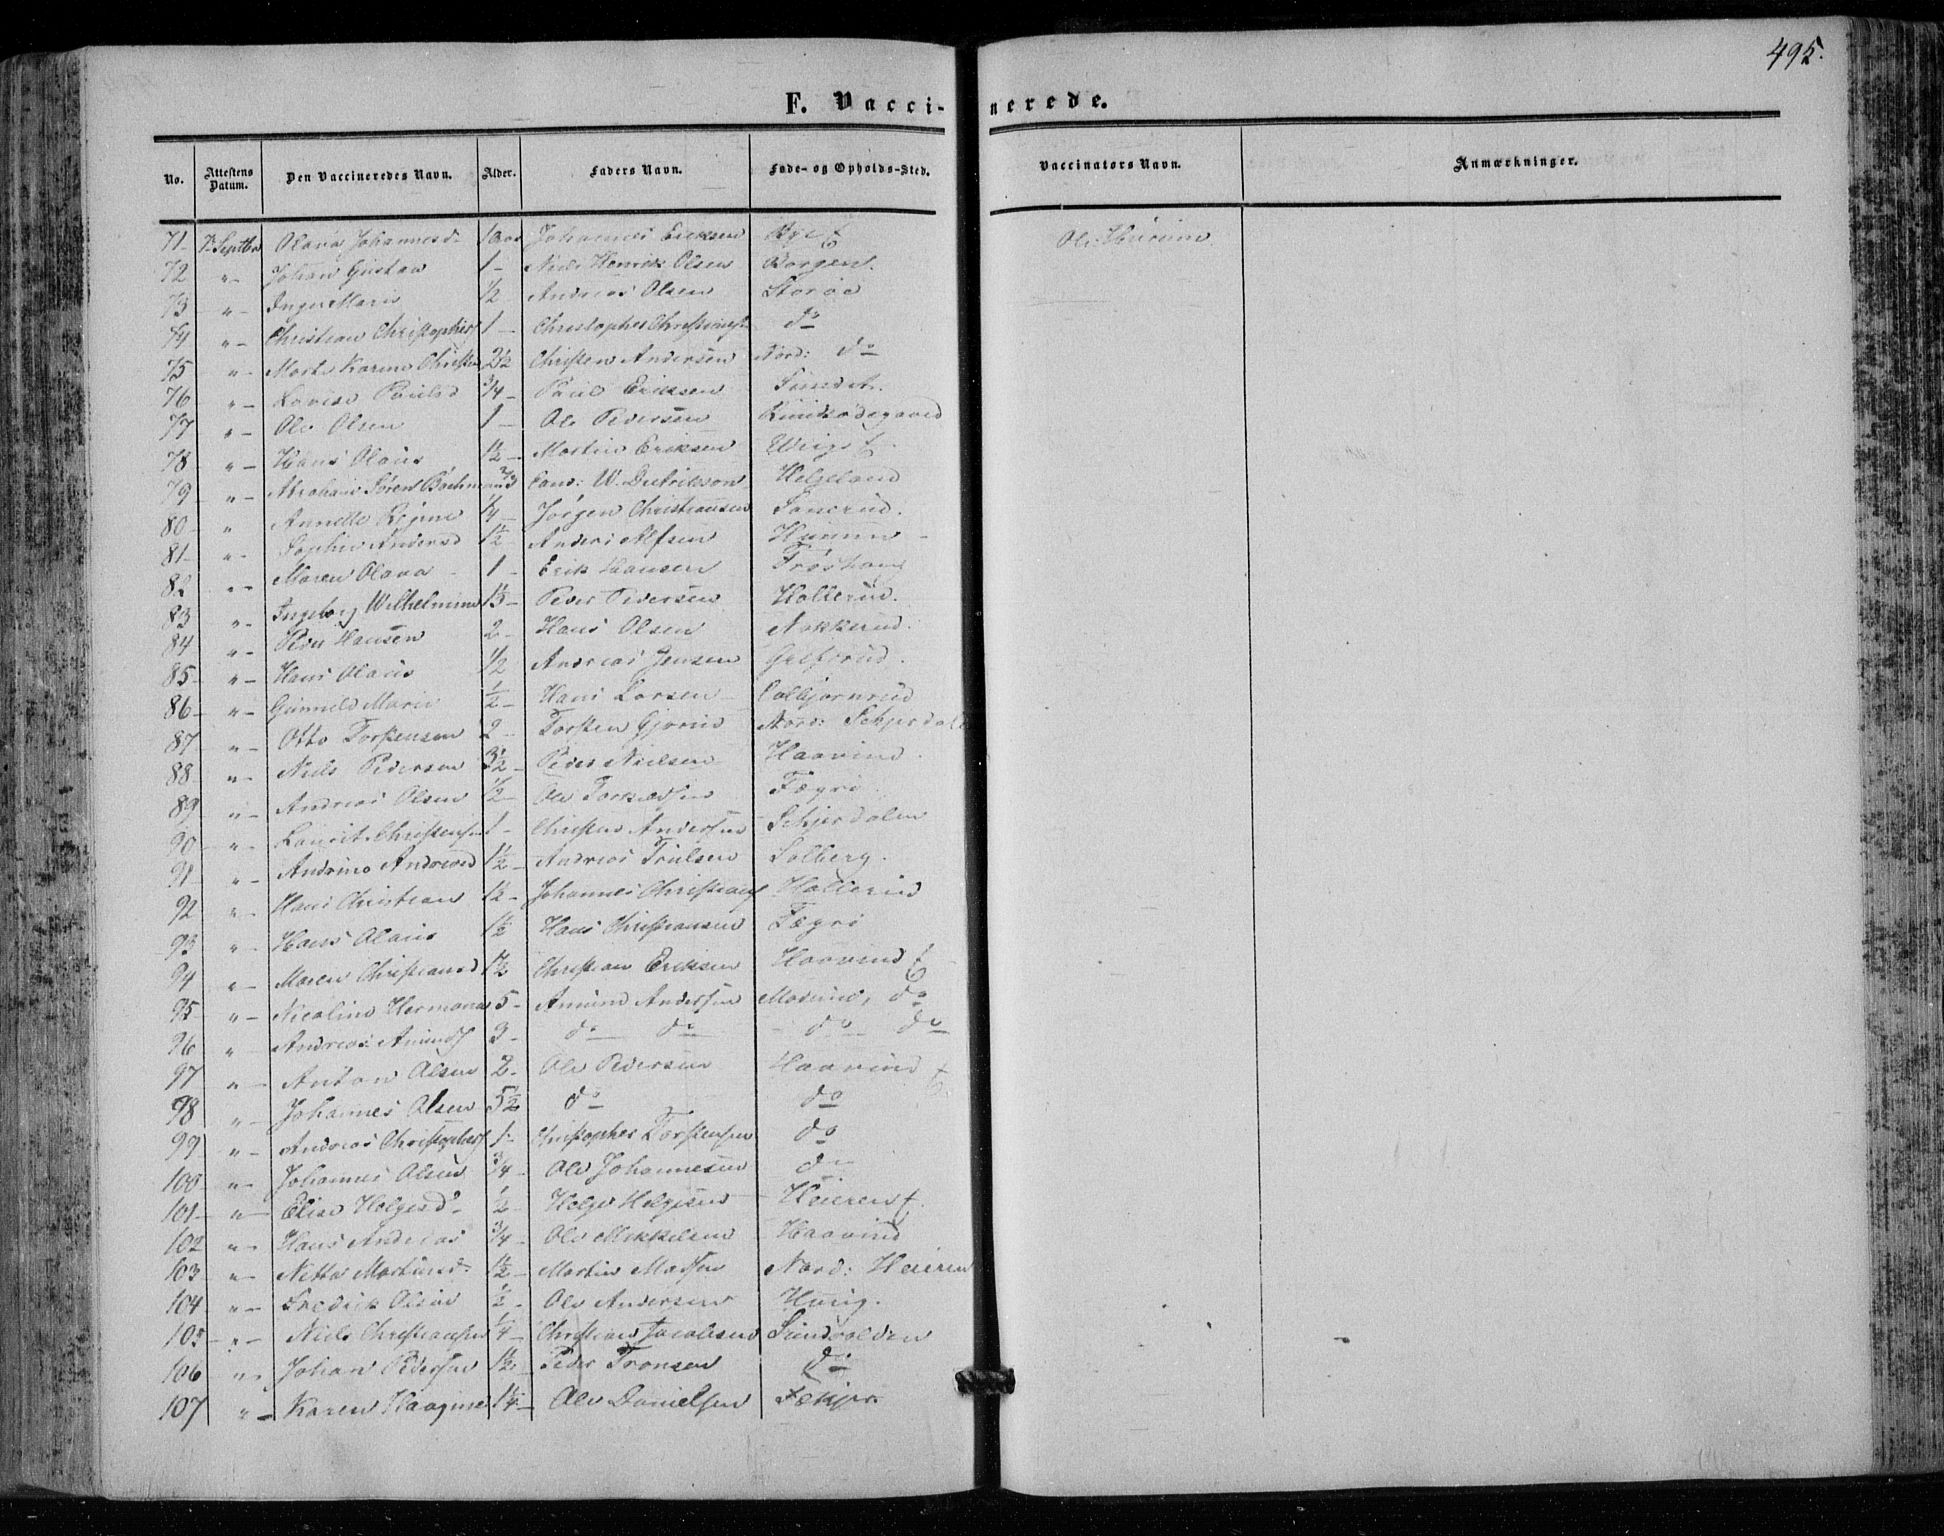 495.
F. Vaccinerede.
No. Attestens Datum. Den Vaccineredes Navn. Alder. Faders Navn. Føde- og Opholds-Sted. Vaccinators Navn. Anmærkninger.
71 Septbr Olava Johannesd. Johannes Eriksen
72 " Johan Gustav 1 Niels Henrik Olsen Borgen.
73 " Inger Marie 1/2 Andreas Olsen Storøe
74 " Christian Christophers 1 Christopher Christiansen do
75 " Marte Karine Christen 2 1/2 Christen Andersen Nord: do
76 " Lovise Paulsd 3/4 Paul Eriksen Sundet.
77 " Ole Olsen 1 Ole Pedersen
78 " Hans Olaus 1 1/2 Martin Eriksen
79 " Abraham Søren 2/3 W. Dietrikson Helgeland
80 " Annette Regine 1/4 Jørgen Christiansen Sonerud.
81 " Sophie Andersd 1 1/2 Anders Alfsen
82 " Maren Olava 1 Erik Hansen Frøshoug
83 " Ingeborg Wilhelmine 1 1/3 Peder Pedersen Hollerud.
84 " Peder Hansen 2 Hans Olsen Nokkerud.
85 " Hans Olaus 1/2 Andreas Jensen Grefsrud.
86 " Gunnild Marie 1/2 Hans Larsen Colbjørnrud
87 " Otto Torstensen 2 Torsten Nord:
88 " Niels Pedersen 3 1/2 Peder Nielsen Haavind
89 " Andreas Olsen 1/2 Ole Torkildsen Fægri
90 " Laurits Christensen 1 Christen Andersen Schjerdalen
91 " Andrine Andreasd 1 1/2 Andreas Trulsen Solberg.
92 " Hans Christian 1 1/2 Johannes Christians Hollerud
93 " Hans Olaus 1 1/2 Hans Christiansen Fægri
94 " Maren Christiansd 1 1/2 Christian Eriksen Haavind
95 " Nicoline Hermana 5 Amund Andersen do
96 " Andreas Amunds 3 do do do do
97 " Anton Olsen 2 Ole Pedersen Haavind
98 " Johannes Olsen 5 1/2 do do
99 " Andreas Christophers 1 Christopher Torstensen do
100 " Johannes Olsen 3/4 Ole Johannesen do
101 " Elise Helgesd 1/2 Helge Helgesen Heieren
102 " Hans Andreas 3/4 Ole Mikkelsen Haavind
103 " Netta Martinsd. 1 1/2 Martin Madsen Nord: Heieren
104 " Fredrik Olsen 1/2 Ole Andersen
105 " Niels Christiansen 1/4 Christian Jacobsen Sundvolden
106 " Johan Pedersen 1 1/2 Peder Tronsen do
107 " Karen 1 1/4 Ole Danielsen